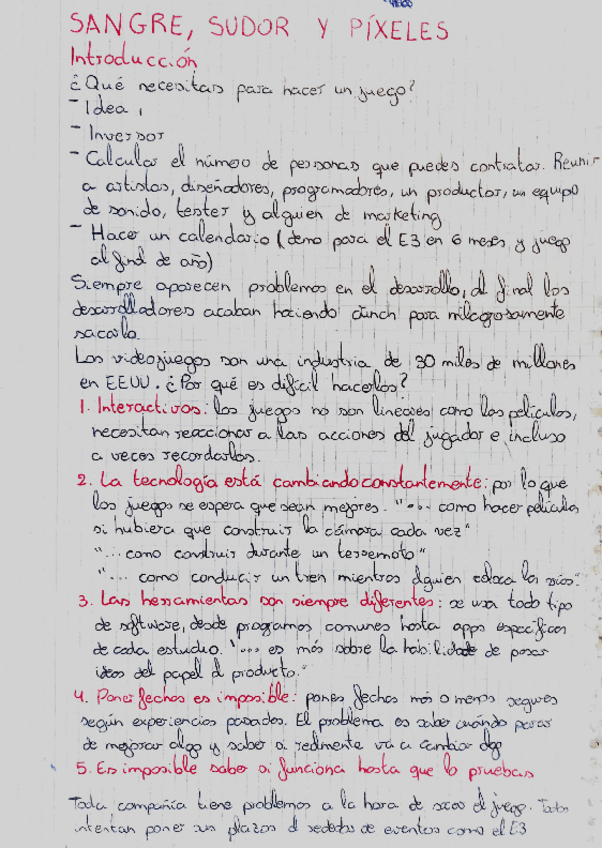 SANGRE, SUDOR Y PÍXELES
Introducción
¿Qué necesitas para hacer un juego?
- Idea
- Inversor
- Calcular el número de personas que puedes contratar. Reunir
a artistas, diseñadores, programadores, un productor, un equipo
de sonido, tester y alguien de marketing
- Hacer un calendario (demo para el E3 en 6 meses y juego
al final de año)
Siempre aparecen problemas en el desarrollo, al final los
desarrolladores acaban haciendo crunch para milagrosamente
sacarlo.
Los videojuegos son una industria de 30 miles de millones
en EEUU. ¿Por qué es difícil hacerlos?
1. Interactivos: los juegos no son lineares como las películas,
necesitan reaccionar a las acciones del jugador e incluso
a veces recordarlos.
2. La tecnología está cambiando constantemente: por lo que
los juegos se espera que sean mejores. "... como hacer películas
si hubiera que construir la cámara cada vez"
"... como construir durante un terremoto"
"... como conducir un tren mientras alguien coloca las vías."
3. Las herramientas son siempre diferentes: se usa todo tipo
de software, desde programas comunes hasta apps específicas
de cada estudio. "... es más sobre la habilidad de pasar
ideas del papel al producto."
4. Poner fechas es imposible: pones fechas más o menos seguras
según experiencias pasadas. El problema es saber cuándo parar
de mejorar algo y saber si realmente va a cambiar algo
5. Es imposible saber si funciona hasta que lo pruebas
Toda compañía tiene problemas a la hora de sacar el juego. Todos
intentan poner sus plazos al rededor de eventos como el E3